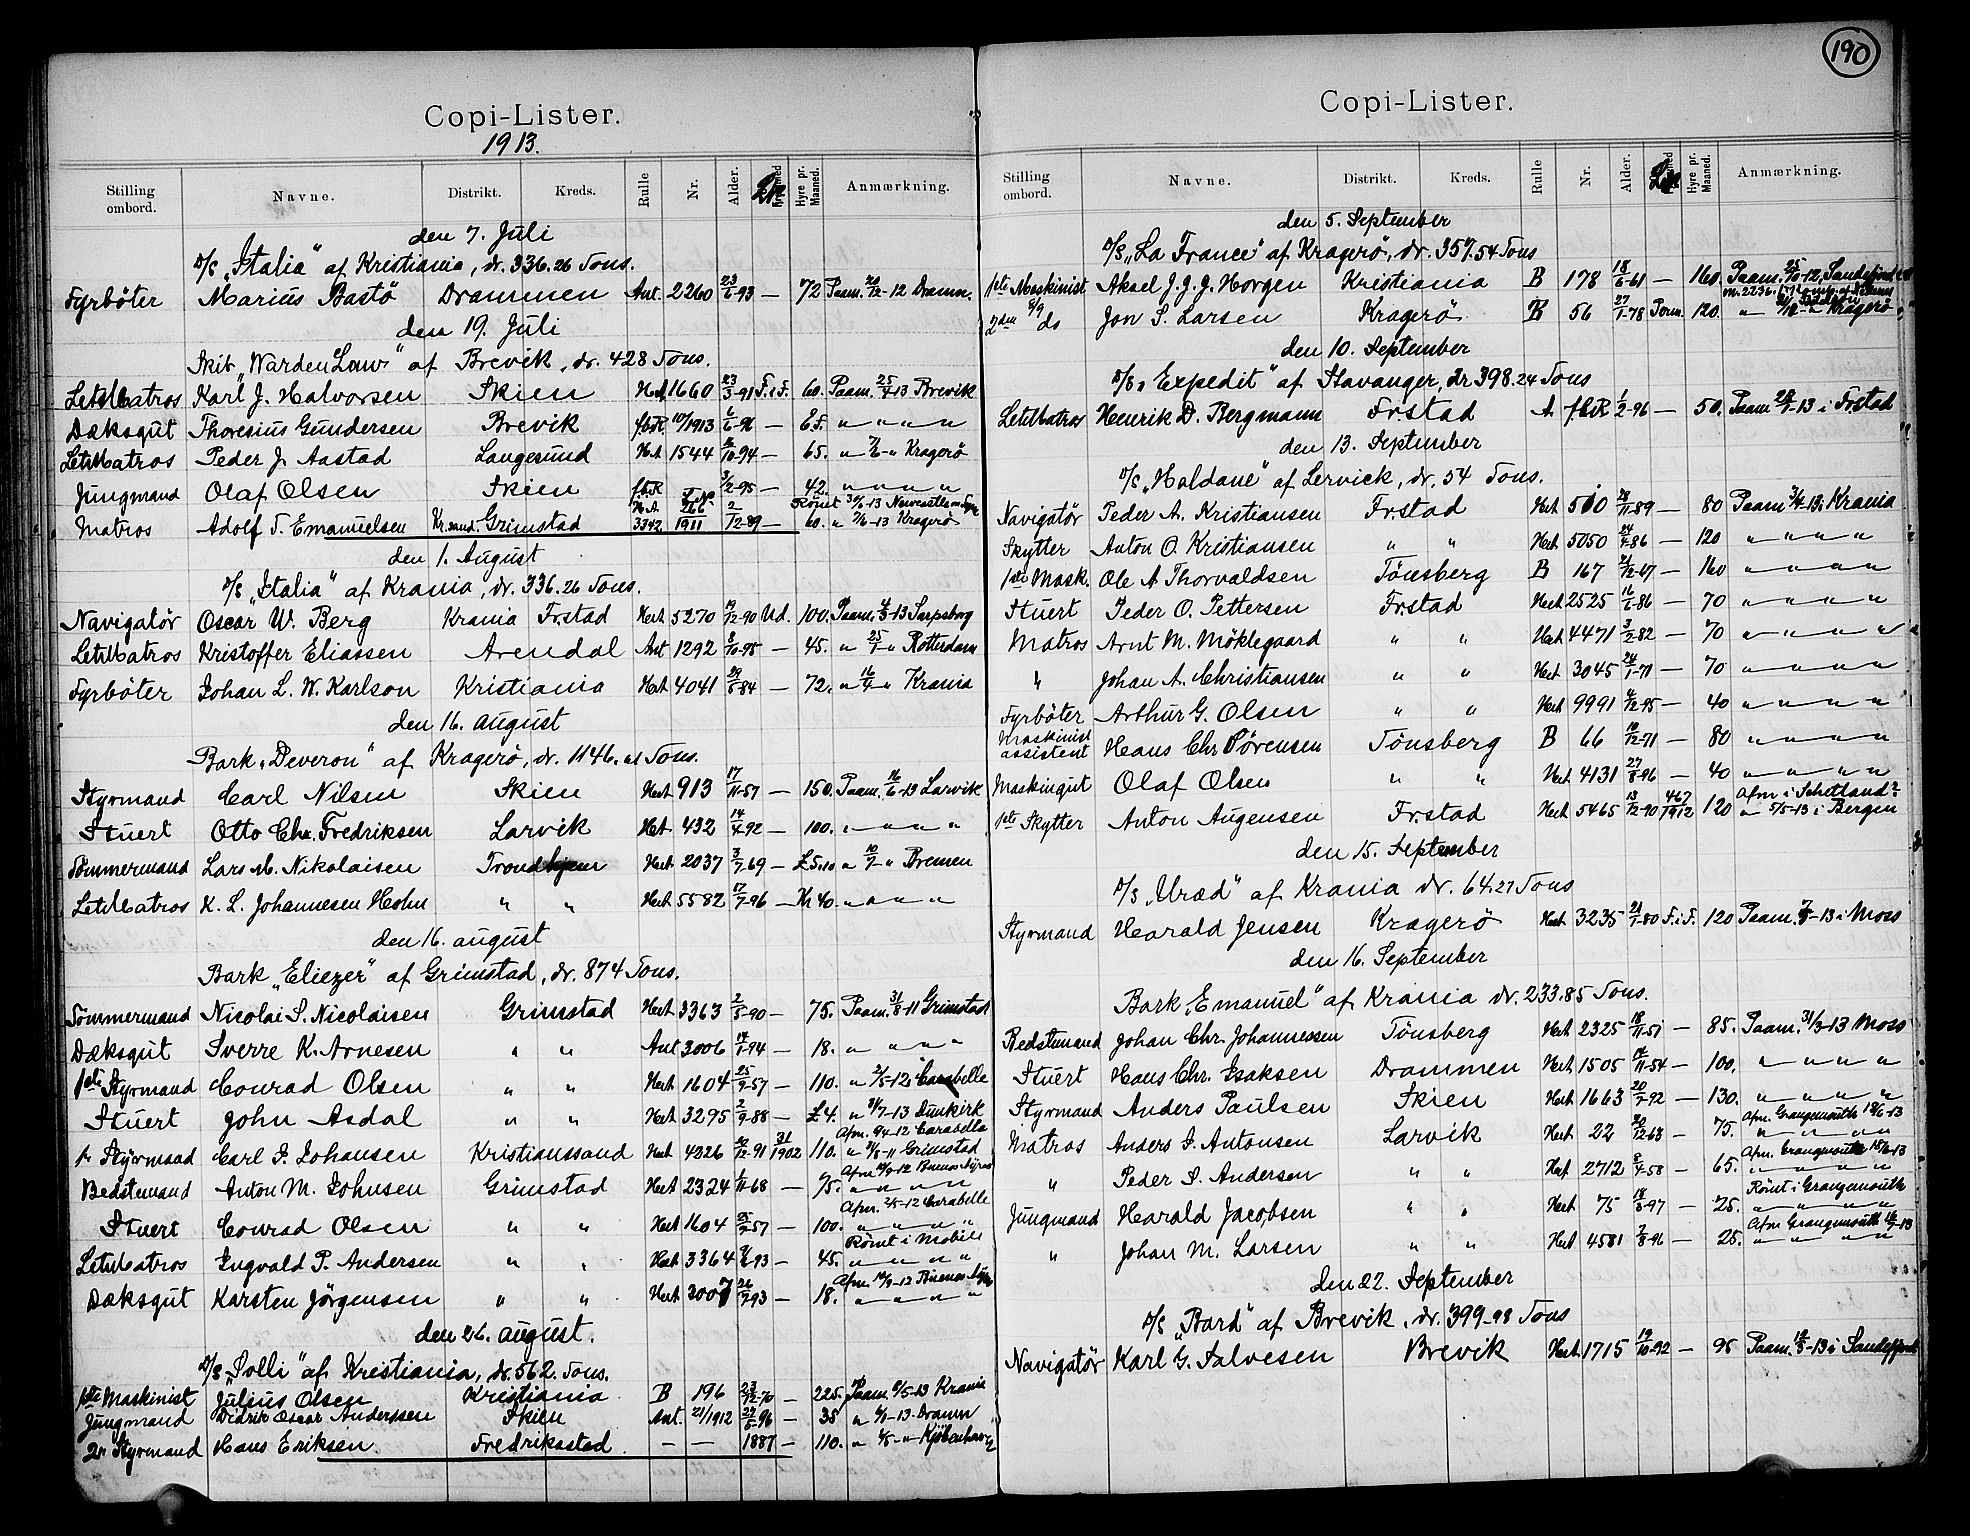 190
Copi-Lister.
1913.
Stilling ombord. Navne. Distrikt. Kreds. Rulle Nr. Alder. Hyre pr. Maaned. Anmærkning.
den 7. Juli
D/S „Italia" af Kristiania, dr. 336.26 Tons.
Fyrböter Marius Bastö Drammen Ant. 2260 23/6-93 — 72 Paam. 20/12-12 Dramm.
den 19. Juli
Skib „Warden Law" af Brevik, dr. 428 Tons.
LetMatros Karl J. Halvorsen Skien H.A. 1660 23/3-91 F.i F. 60. Paam. 25/4-13 Brevik
Dæksgut Thoresius Gundersen Brevik fb.R. 10/1913 6/6-96 — 25. " " " "
LetMatros Peder J. Aastad Langesund Het 1544 4/10-94 — 65. " 7/6-" Kragerö
Jungmand Olaf Olsen Skien fb.R 3/2-95 — 42. " " " "
Römt 30/6-13 Newcastle on Tyne
Matros Adolf T. Emanuelsen Kr.sand. Grimstad H.A. 3342 266/1911 2/12-89 — 60. " 7/6-13 Kragerö
den 1. August
D/S „Italia" af Krania, dr. 336.26 Tons.
Navigatör Oscar W. Berg Krania Fr.stad Het 5270 17/12-90 Ud. 100. Paam. 4/3-13 Sarpsborg
LetMatros Kristoffer Eliassen Arendal Ant 1292 8/10-95 — 45. " 25/7-" Rotterdam
Fyrböter Johan L. W. Karlson Kristiania Het 4041 29/5-84 — 72. " 16/4-" Krania
den 16. august
Bark „Deveron" af Kragerö, dr. 1146. Tons.
Styrmand Carl Nilsen Skien Het 913 17/11-57 — 150. Paam. 16/6-13 Larvik
Stuert Otto Chr. Fredriksen Larvik Het. 432 14/4-92 — 100. " " " "
Tömmermand Lars M. Nikolaisen Trondhjem Het 2037 3/7-69 — £5.10 " 10/7-" Bremen
LetMatros K. L. Johannesen Hohn " " Het 5582 17/7-96 — Kr 40. " " " "
den 16. august
Bark „Eliezer" af Grimstad, dr. 874 Tons.
Tömmermand Nicolai S. Nicolaisen Grimstad Het 3363 2/5-90 — 75. Paam. 31/8-11 Grimstad
Dæksgut Sverre K. Arnesen " " Ant 3006 14/1-94 — 18. " " " "
1ste Styrmand Conrad Olsen " " Het 1604 25/9-57 — 110. " 2/5-12 i Carabelle
Stuert John Asdal " " Het 3295 2/9-88 — £4. " 31/7-13 Dunkirk
Afm. 9/4-12 Carabella
1ste Styrmand Carl J. Johansen Kristianssand Het 4226 12/12-91 31/1902 110. " 31/8-11 Grimstad
Afm. 10/9-12 Buenos Ayres
Bedstemand Anton M. Johnsen Grimstad Het 2324 1/11-68 — 75. " " " "
Afm. 2/5-12 Carabelle
Stuert Conrad Olsen " " Het 1604 25/9-57 — 100. " " " "
Römt i Mobile
LetMatros Ingvald P. Andersen " " Het 3364 2/6-93 — 45. " " " "
Afm. 10/9-12 Buenos Ayres
Dæksgut Karsten Jörgensen " " Het 3007 26/7-93 — 18. " " " "
den 26. august.
D/S „Solli" af Kristiania, dr. 562. Tons.
1ste Maskinist Julius Olsen Kristiania B 196 23/12-70 — 225. Paam. 9/5-13 Krania
Jungmand Didrik Oscar Anderssen Skien Ant. 21/1912 27/6-96 — 35 " 6/1-13. Dramn
2n Styrmand Hans Eriksen Fredriksstad. — — 1887 — 110. " 6/5-" Kjöbenhavn
Copi-Lister.
Stilling ombord. Navne. Distrikt. Kreds. Rulle Nr. Alder. Hyre pr. Maaned. Anmærkning.
den 5. September
D/S „La France" af Kragerö, dr. 357.54 Tons
1ste Maskinist Aksel J. J. J. Horgen Kristiania B 178 18/6-61 — 160. Paam. 25/10-12. Sandefjord
2den do Jon S. Larsen Kragerö B 56 27/1-78 Perm. 120. " Kragerö
den 10. September
D/S „Expedit" af Stavanger, dr 398.24 Tons
LetMatros Henrik D. Bergmann Fr.stad A. fb.R 1/2-96 — 50. Paam. 28/7-13 i Fr.stad
den 13. September
D/S „Haldane" af Lervick, dr. 54 Tons.
Navigatör Peder A. Kristiansen Fr.stad Het 510 28/11-89 — 80 Paam. 3/4-13 i Krania
Skytter Anton O. Kristiansen " " Het 5050 24/4-86 — 120 " " " "
1ste Mask. Ole A Thorvaldsen Tönsberg B 167 21/12-67 — 160 " " " "
Stuert Peder O. Pettersen Fr.stad Het 2525 16/6-86 — 70 " " " "
Matros Arnt M. Möklegaard " " Het 4471 3/2-82 — 70 " " " "
" Johan A. Christiansen " " Het 3045 24/1-71 — 70 " " " "
Fyrböter Arthur G. Olsen " " Het 9991 4/12-95 — 40 " " " "
Maskinist assistent Hans Chr Sörensen Tönsberg B 66 10/12-71 — 80 " " " "
Maskingut Olaf Olsen " " Het 4131 27/8-96 — 40 " " " "
Afm i Schetland?
1ste Skytter Anton Augensen Fr.stad Het 5465 13/12-90 467/1912 120 " 5/5-13 i Bergen
den 15. September
D/S „Uræd" af Krania dr. 64.27 Tons
Styrmand Harald Jensen Kragerö Het 3235 21/1-80 F.i F. 120 Paam. 7/8-13 i Moss
den 16. September
Bark „Emanuel" af Krania dr. 233.85 Tons.
Bedstemand Johan Chr. Johannessen Tönsberg Het 2325 18/11-51 — 85. Paam. 31/3-13 Moss
Stuert Hans Chr. Isaksen Drammen Het 1505 14/11-54 — 100. " " " "
Styrmand Anders Paulsen Skien Het 1663 20/7-92 — 130. " " " "
Afm. Grangemouth 18/6-13
Matros Anders J. Antonsen Larvik Het 22 22/12-63 — 75. " " " "
Afm. Grangemouth 18/6-13
" Peder S. Andersen " " Het 2712 8/4-58 — 65. " " " "
Römt i Grangemouth
Jungmand Harald Jacobsen " " Het 75 18/8-97 — 25. " " " "
Afm Grangemouth 18/7-13
" Johan M. Larsen " " Het 4581 7/8-96 — 25. " " " "
den 22. September
D/S „Bard" af Brevik, dr. 399-98 Tons
Navigatör Karl G. Salvesen Brevik Het 1715 19/10-92 — 95 Paam. 18/8-13 i Sandefjord